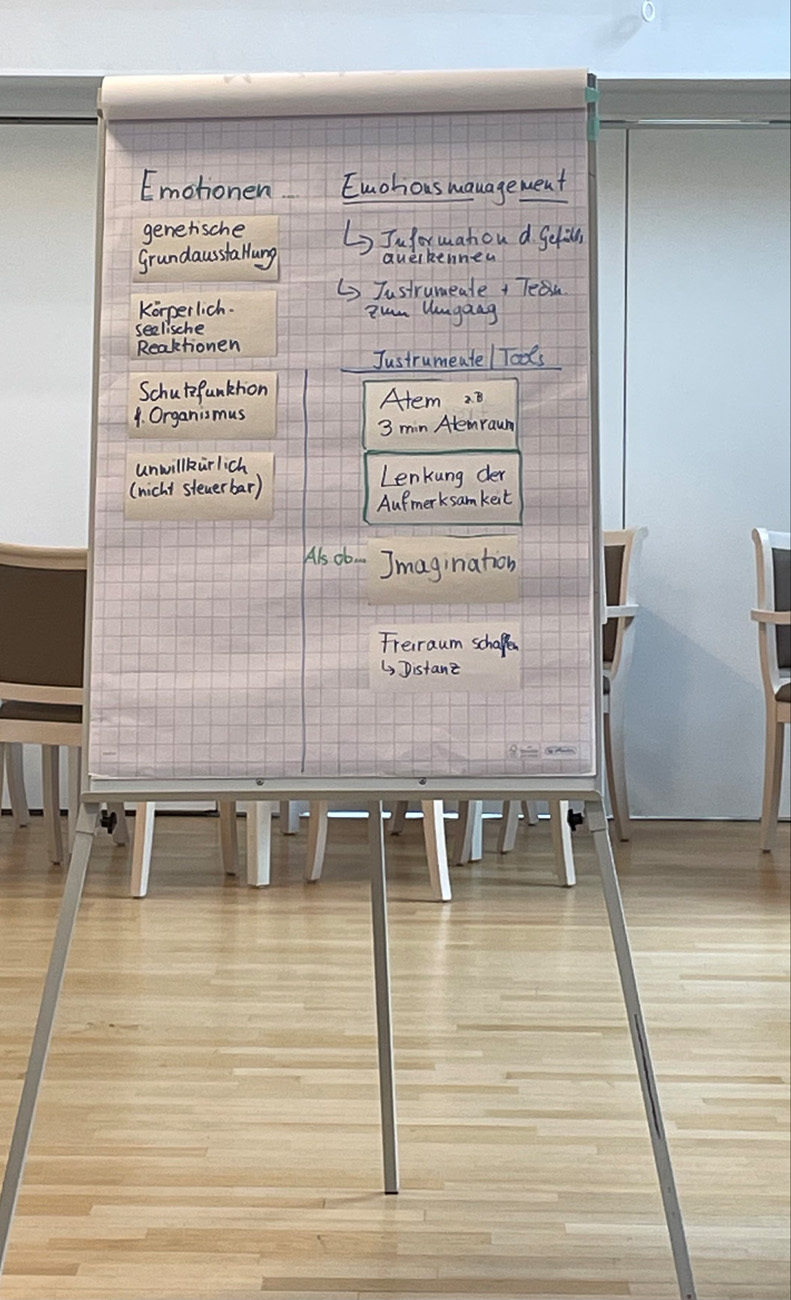 Emotionen ...
genetische
Grundausstattung
Körperlich-
seelische
Reaktionen
Schutzfunktion
f. Organismus
unwillkürlich
(nicht steuerbar)
Emotionsmanagement
↳ Information d. Gefühls
anerkennen
↳ Instrumente +
zum Umgang
Instrumente/Tools
Atem z.B
3 min Atemraum
Lenkung der
Aufmerksamkeit
Als ob... Imagination
Freiraum schaffen
↳ Distanz